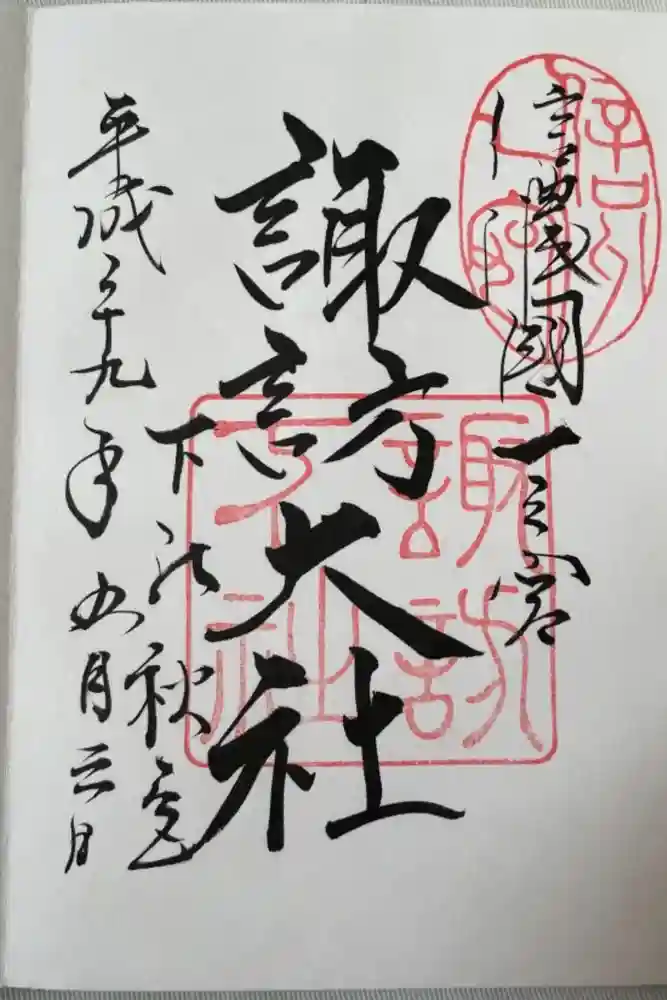 信濃國一之宮
諏訪大社
諏訪下社
下社秋宮
平成二十九年五月三日